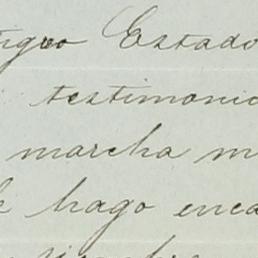 Estado
testimonio
marcha m
hago enca